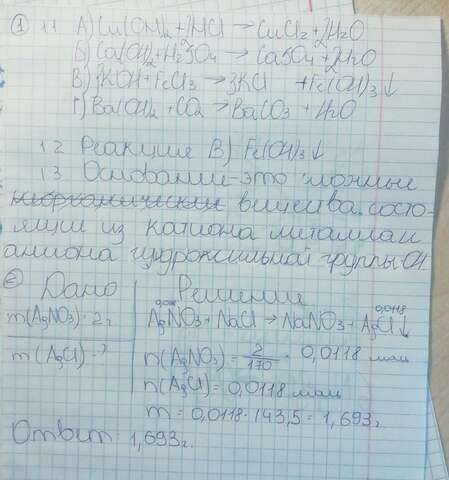 ① 1.1 А) Cu(OH)₂ + 2HCl → CuCl₂ + 2H₂O
Б) Ca(OH)₂ + H₂SO₄ → CaSO₄ + 2H₂O
В) 3KOH + FeCl₃ → 3KCl + Fe(OH)₃↓
Г) Ba(OH)₂ + CO₂ → BaCO₃ + H₂O
1.2 Реакция В) Fe(OH)₃↓
1.3 Основании - это сложные
неорганические вещества состо-
ящии из катиона металла и
аниона гидроксильной группы OH
② Дано Решение
0,0118
m(AgNO₃) = 2г AgNO₃ + NaCl → NaNO₃ + AgCl↓
m(AgCl) - ? n(AgNO₃) = 2/170 = 0,0118 моль
n(AgCl) = 0,0118 моль
m = 0,0118 · 143,5 = 1,693г
Ответ: 1,693г.